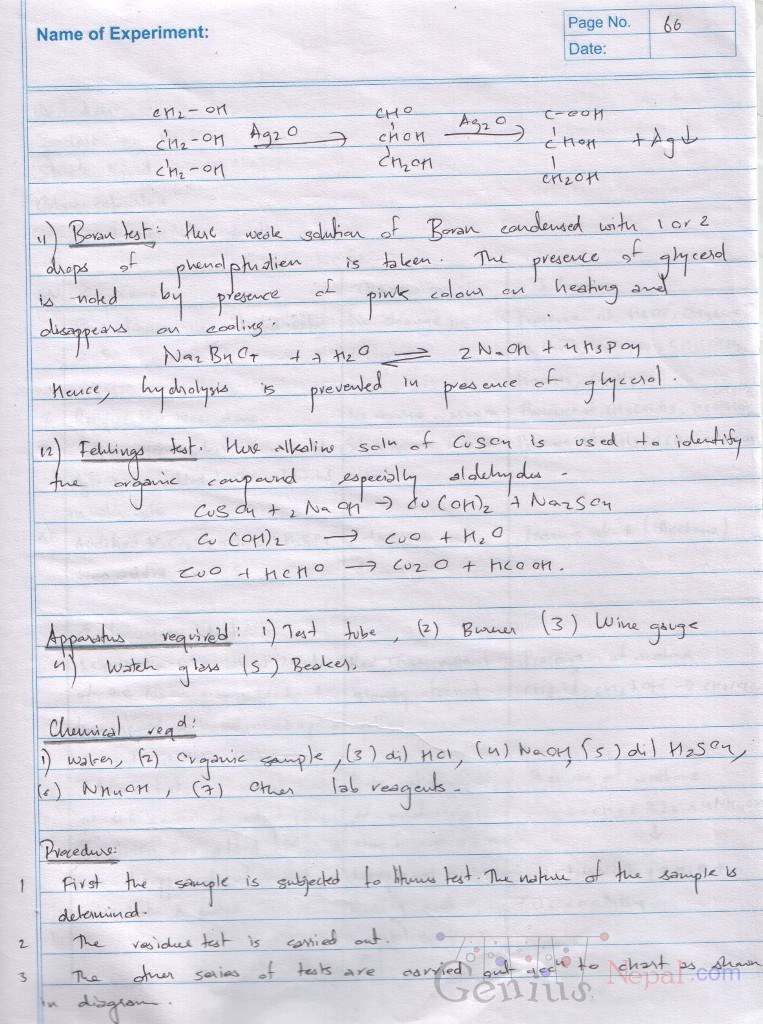 Name of Experiment:
Page No. 66
Date:
CH2 - OH CHO C-OOH
CH2 - OH Ag2O → CHOH Ag2O → CHOH + Ag↓
CH2 - OH CH2OH CH2OH
11) Boran test: Here weak solution of Boran condensed with 1 or 2
drops of is taken. The presence of glycerol
is noted by presence of pink colour on heating and
disappears on cooling.
Na2B4O7 + 7 H2O ⇌ 2 NaOH + 4H3PO4
Hence, hydrolysis is prevented in presence of glycerol.
12) Fehlings test. Here alkaline soln of CuSO4 is used to identify
the organic compound especially aldehydes.
CuSO4 + 2 NaOH → Cu(OH)2 + Na2SO4
Cu(OH)2 → CuO + H2O
CuO + HCHO → Cu2O + HCOOH.
Apparatus required: 1) Test tube, (2) Burner (3) Wire gauge
4) Watch glass (5) Beaker.
Chemical reqd:
1) water, (2) Organic sample, (3) dil HCl, (4) NaOH, (5) dil H2SO4,
(6) NH4OH, (7) Other lab reagents.
Procedure:
1 First the sample is subjected to test. The nature of the sample is
determined.
2 The residue test is carried out.
3 The other series of tests are carried out to chart as shown
in diagram.
Genius Nepal.com